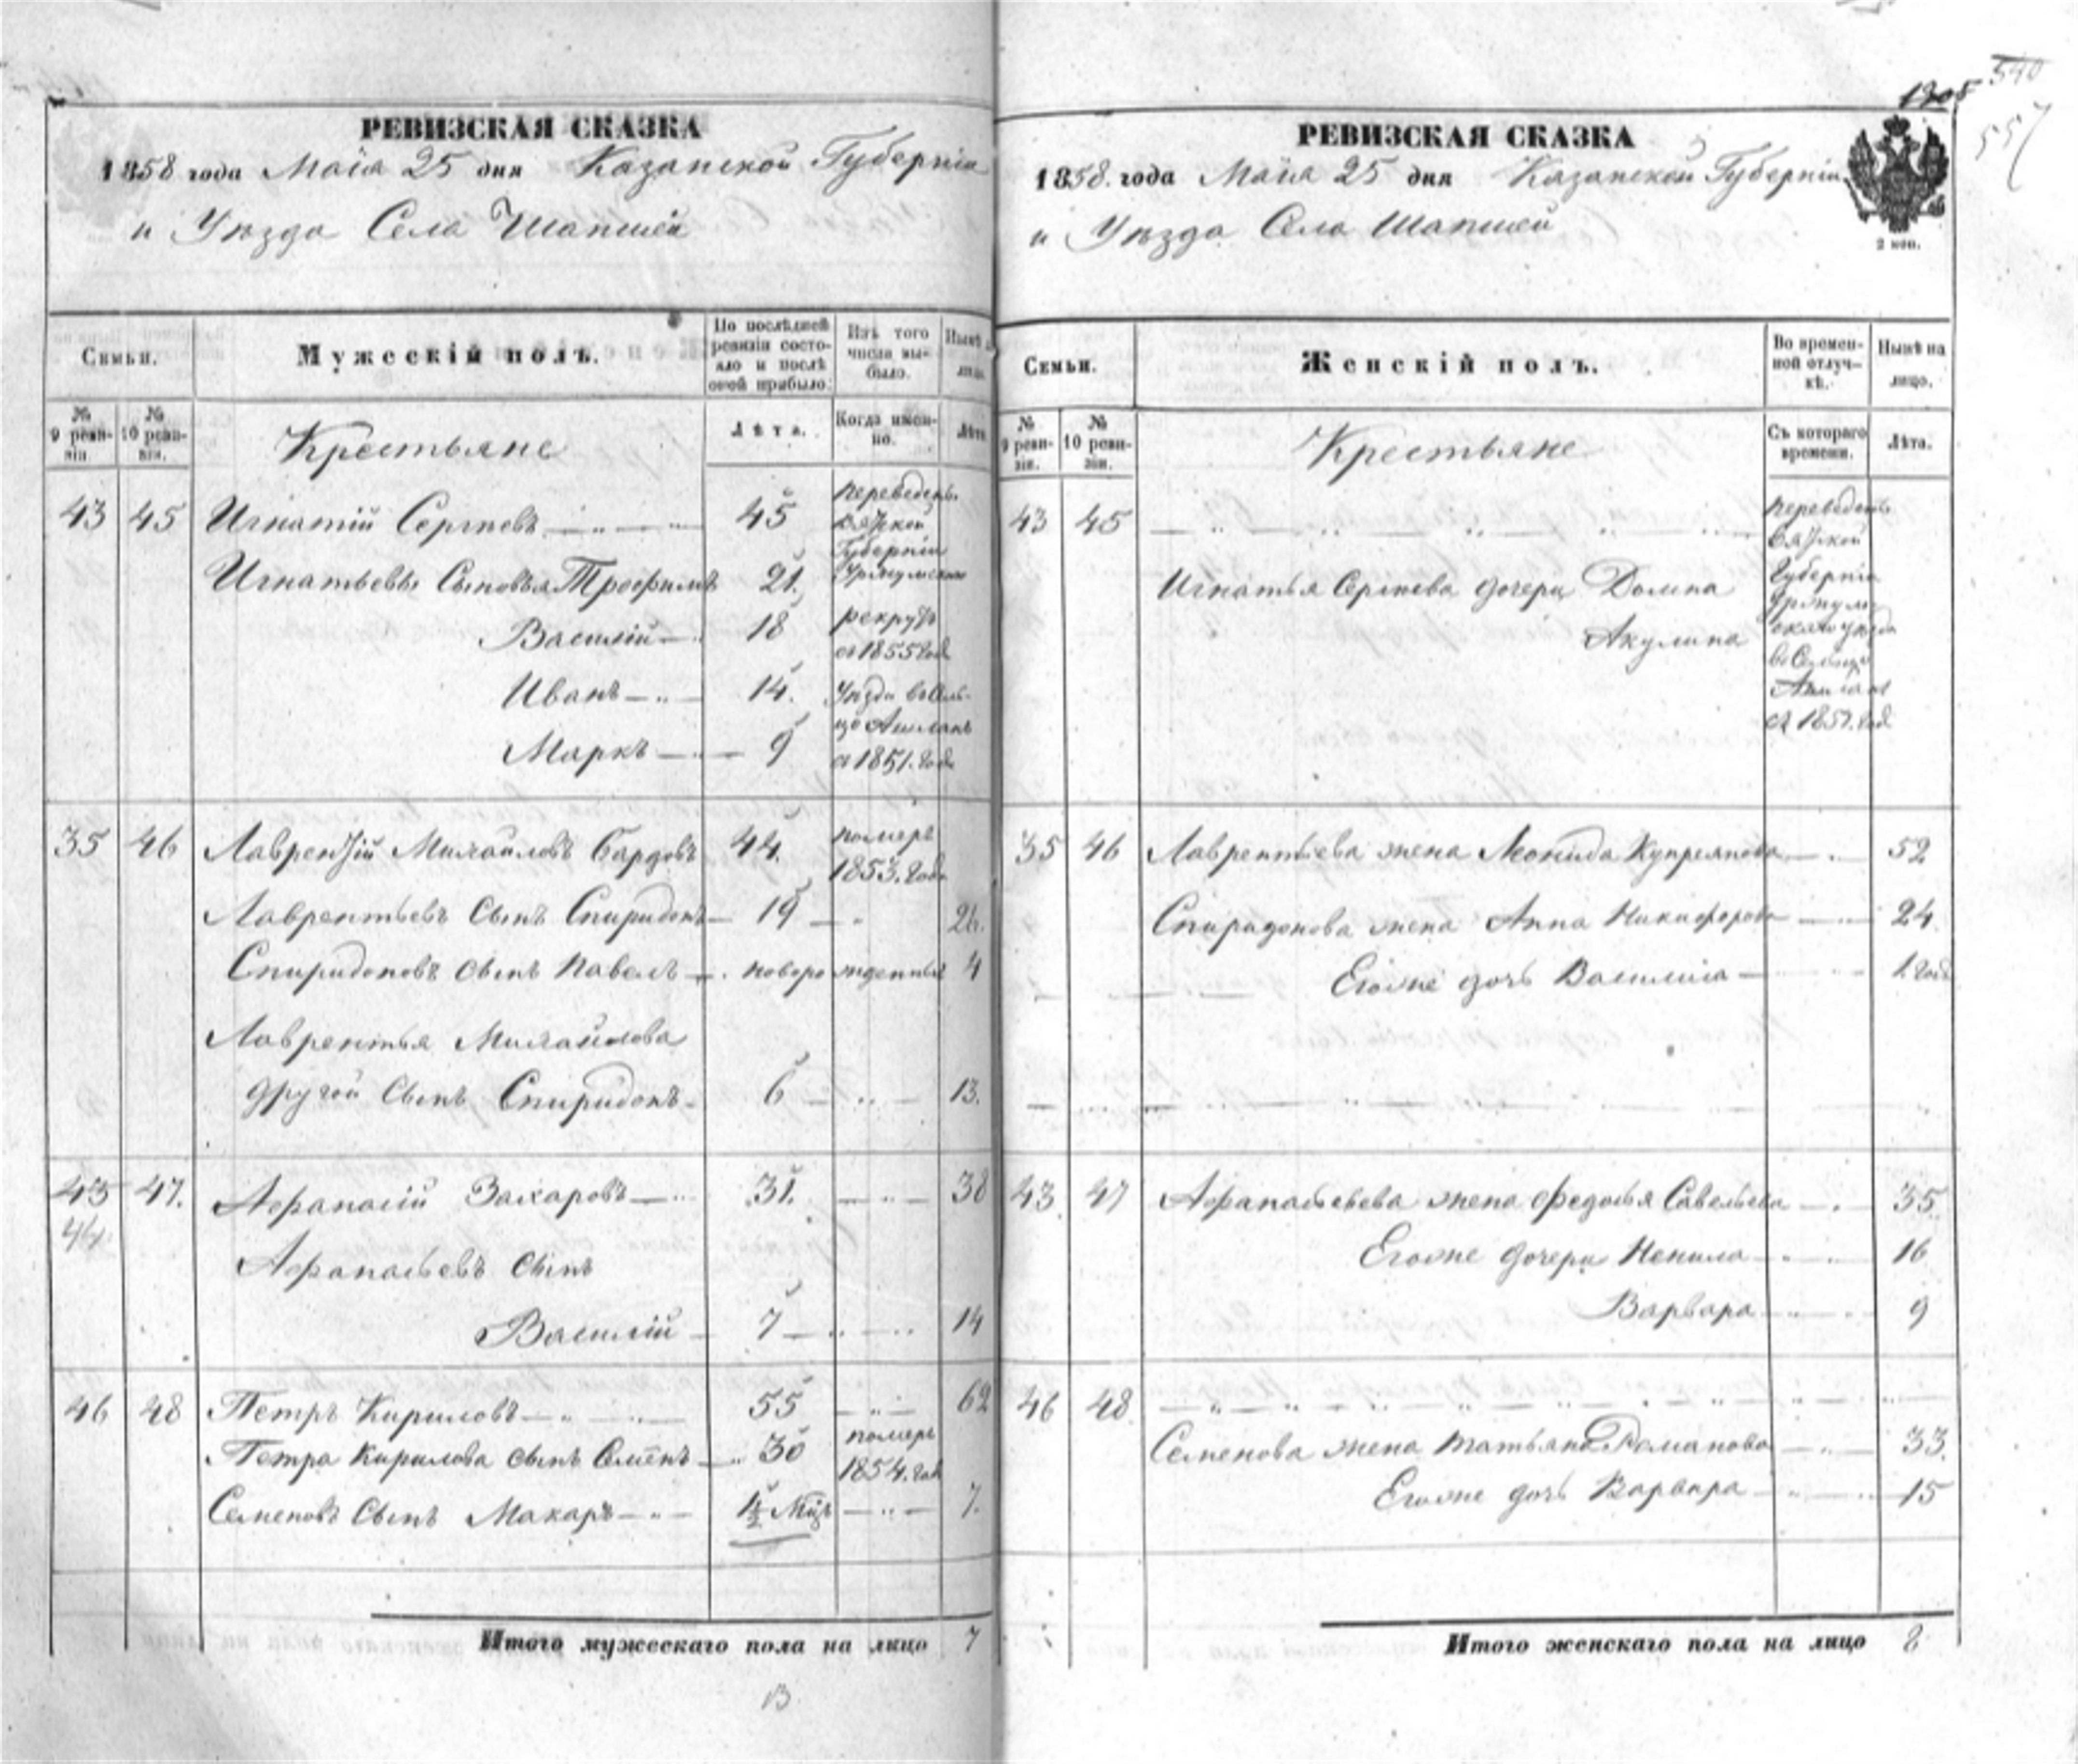 1205 540
557
РЕВИЗСКАЯ СКАЗКА
1858 года Маія 25 дня Казанской Губерніи
и Уѣзда Села Шапшей
Семьи.
Мужескій полъ.
По послѣдней ревизіи состояло и послѣ оной прибыло.
Изъ того числа выбыло.
Нынѣ на лицо.
№ 9 ревизіи.
№ 10 ревизіи.
Крестьяне
Лѣта.
Когда именно.
Лѣта
43 45 Игнатій Сергѣевъ 45 переведенъ Вятской
Игнатьевы Сыновья Трофимъ 21. Губерніи Уржумскаго
Василій 18 рекрутъ съ 1855 года
Иванъ 14. Уѣзда въ Сель-
Маркъ 9 цо съ 1851. года
35 46 Лаврентій Михайловъ Бардовъ 44. померъ 1853. года
Лаврентьевъ сынъ Спиридонъ 19 26.
Спиридоновъ сынъ Павелъ новорожденный 4
Лаврентья Михайлова
другой сынъ Спиридонъ 6 13.
43 47. Афанасій Захаровъ 31. 38
44
Афанасьевъ сынъ
Василій 7 14
46 48 Петръ Кириловъ 55 62
Петра Кирилова сынъ Семенъ 30 померъ 1854. года
Семеновъ сынъ Макаръ 1/2 Мѣц 7.
Итого мужескаго пола на лицо 7
РЕВИЗСКАЯ СКАЗКА
1858. года Маія 25 дня Казанской Губерніи
и Уѣзда Села Шапшей
2 коп.
Семьи.
Женскій полъ.
Во временной отлучкѣ.
Нынѣ на лицо.
№ 9 ревизіи.
№ 10 ревизіи.
Крестьяне
Съ котораго времени.
Лѣта.
43 45 переведены Вятской
Игнатья Сергѣева дочери Домна Губерніи Уржум-
Акулина скаго уѣзда
съ 1851. года
35 46 Лаврентьева жена Леонида Купреянова 52
Спиридонова жена Анна Никифорова 24.
Егоже дочь Василиса 1. годъ
43. 47 Афанасьевева жена Федосья Савельева 35.
Егоже дочери Ненила 16
Варвара 9
46 48.
Семенова жена Татьяна Романова 33.
Егоже дочь Варвара 15
Итого женскаго пола на лицо 8